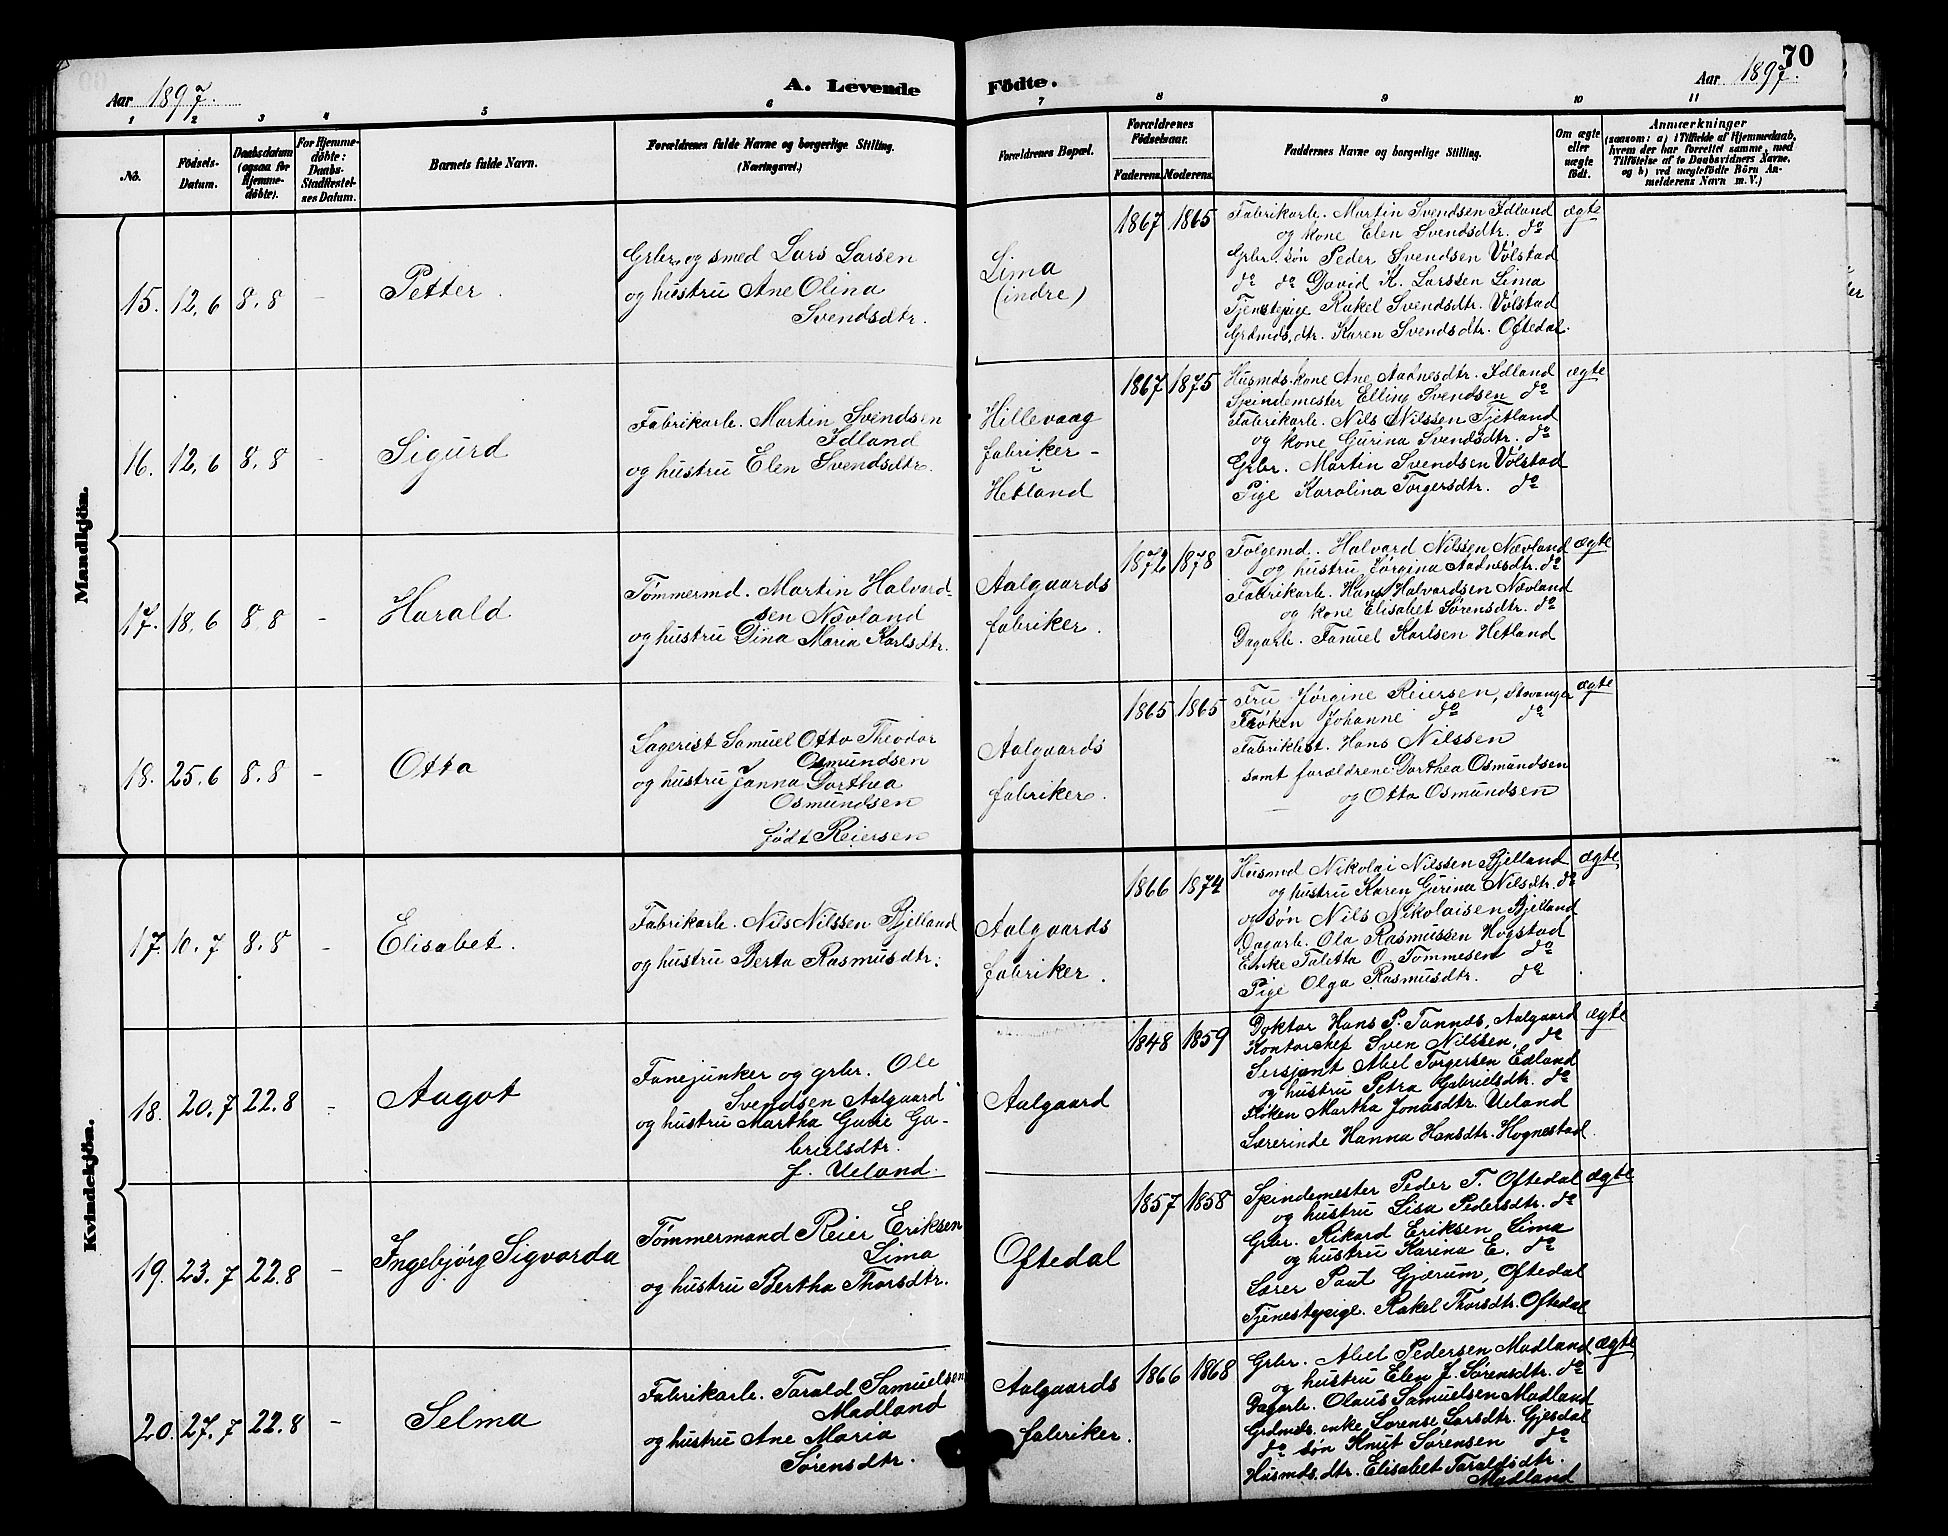 Aar 1897.
A. Levende
Födte.
Aar 1897.
70
1
2
3
4
5
6
7
8
9
10
11
No.
Födsels-
Datum.
Daabsdatum
(ogsaa for
Hjemme-
döbte).
For Hjemme-
döbte:
Daabs-
Stadfæstel-
ses Datum.
Barnets fulde Navn.
Forældrenes fulde Navne og borgerlige Stilling.
(Næringsvei.)
Forældrenes Bopæl.
Forældrenes
Födselsaar.
Faderens.
Moderens.
Faddernes Navne og borgerlige Stilling.
Om ægte
eller
uægte
födt.
Anmærkninger
(saasom: a) i Tilfælde af Hjemmedaab,
hvem der har forrettet samme, med
Tilföielse af to Daabsvidners Navne,
og b) ved uægtefödte Börn An-
melderens Navn m. V.)
Mandkjön.
15. 12,6 8.8 – Petter.
Grbr. og smed Lars Larsen
og hustru Ane Olina
Svendsdtr.
Lima
(indre)
1867 1865
Fabrikarb. Martin Svendsen Idland
og kone Elen Svendsdtr. do
Grbr. søn Peder Svendsen Vølstad
do do David K. Larssen Lima
Tjenstepige Rakel Svendsdtr. Vølstad
Grdmds.dtr. Karen Svendsdtr. Oftedal.
ægte
16. 12,6 8.8 – Sigurd
Fabrikarb. Martin Svendsen
Idland
og hustru Elen Svendsdtr.
Hillevaag
fabriker –
Hetland
1867 1875
Husmds. kone Ane Aadnesdtr. Idland
Spindemester Elling Svendsen do
Fabrikarb. Nils Nilssen Tjetland
og kone Gurina Svendsdtr. do
Grbr. Martin Svendsen Vølstad
Pige Karolina Torgersdtr. do
ægte
17. 18.6 8.8 – Harald
Tømmermd. Martin Halvard-
sen Nævland
og hustru Dina Maria Karlsdtr.
Aalgaards
fabriker.
1872 1878
Folgemd. Halvard Nilssen Nævland
og hustru Jørgina Aadnesdtr. do
Fabrikarb. Hans Halvardsen Nævland
og kone Elisabet Sørensdtr. do
Dagarb. Tanuel Karlsen Hetland
ægte
18. 25.6 8.8 – Otto
Lagerist Samuel Otto Theodor
Osmundsen
og hustru Janna Dorthea
Osmundsen
født Reiersen
Aalgaards
fabriker.
1865 1865
Fru Jørgine Reiersen, Stavanger
Frøken Johanne do do
Fabrikbest. Hans Nilssen
samt forældrene: Dorthea Osmundsen
og Otto Osmundsen
ægte
Kvindekjön.
17. 10.7 8.8 – Elisabet.
Fabrikarb. Nils Nilssen Bjelland
og hustru Berta Rasmusdtr.
Aalgaards
fabriker.
1866 1874
Husmd Nikolai Nilssen Bjelland
og hustru Karen Gurina Nilsdtr. do
og søn Nils Nikolaisen Bjelland
Dagarb. Ola Rasmussen Hogstad
Enke Taletta O. Tømmesen do
Pige Olga Rasmusdtr. do
ægte
18. 20.7 22.8 – Aagot
Fanejunker og grbr. Ole
Svendsen Aalgaard
og hustru Martha Gurie Ga-
brielsdtr.
f. Ueland.
Aalgaard
1848 1859
Doktor Hans P. Tannds, Aalgaard
Kontorchef Sven Nilssen, do
Sersjant Abel Torgersen Edland
og hustru Petra Gabrielsdtr. do
Frøken Martha Jonasdtr. Ueland
Lærerinde Hanna Hansdtr. Hognestad
ægte
19. 23.7 22.8 – Ingebjørg Sigvarda
Tømmermand Reier Eriksen
Lima
og hustru Bertha Thorsdtr.
Oftedal
1857 1858
Spindemester Peder T. Oftedal
og hustru Lisa Pedersdtr. do
Grbr. Rikard Eriksen Lima
og hustru Karina E. do
Lærer Paul Gjærum, Oftedal
Tjenestepige. Rakel Thorsdtr. Oftedal
ægte
20. 27.7 22.8 – Selma
Fabrikarb. Tarald Samuelsen
Madland
og hustru Ane Maria
Sørensdtr.
Aalgaards
fabriker.
1866 1868
Grbr. Abel Pedersen Madland
og hustru Elen J. Sørensdtr. do
Dagarb. Olaus Samuelsen Madland
Grdmds. enke Sørense Larsdtr. Gjesdal
do søn Knut Sørensen do
Husmds. dtr. Elisabet Taraldsdtr.
Madland
ægte